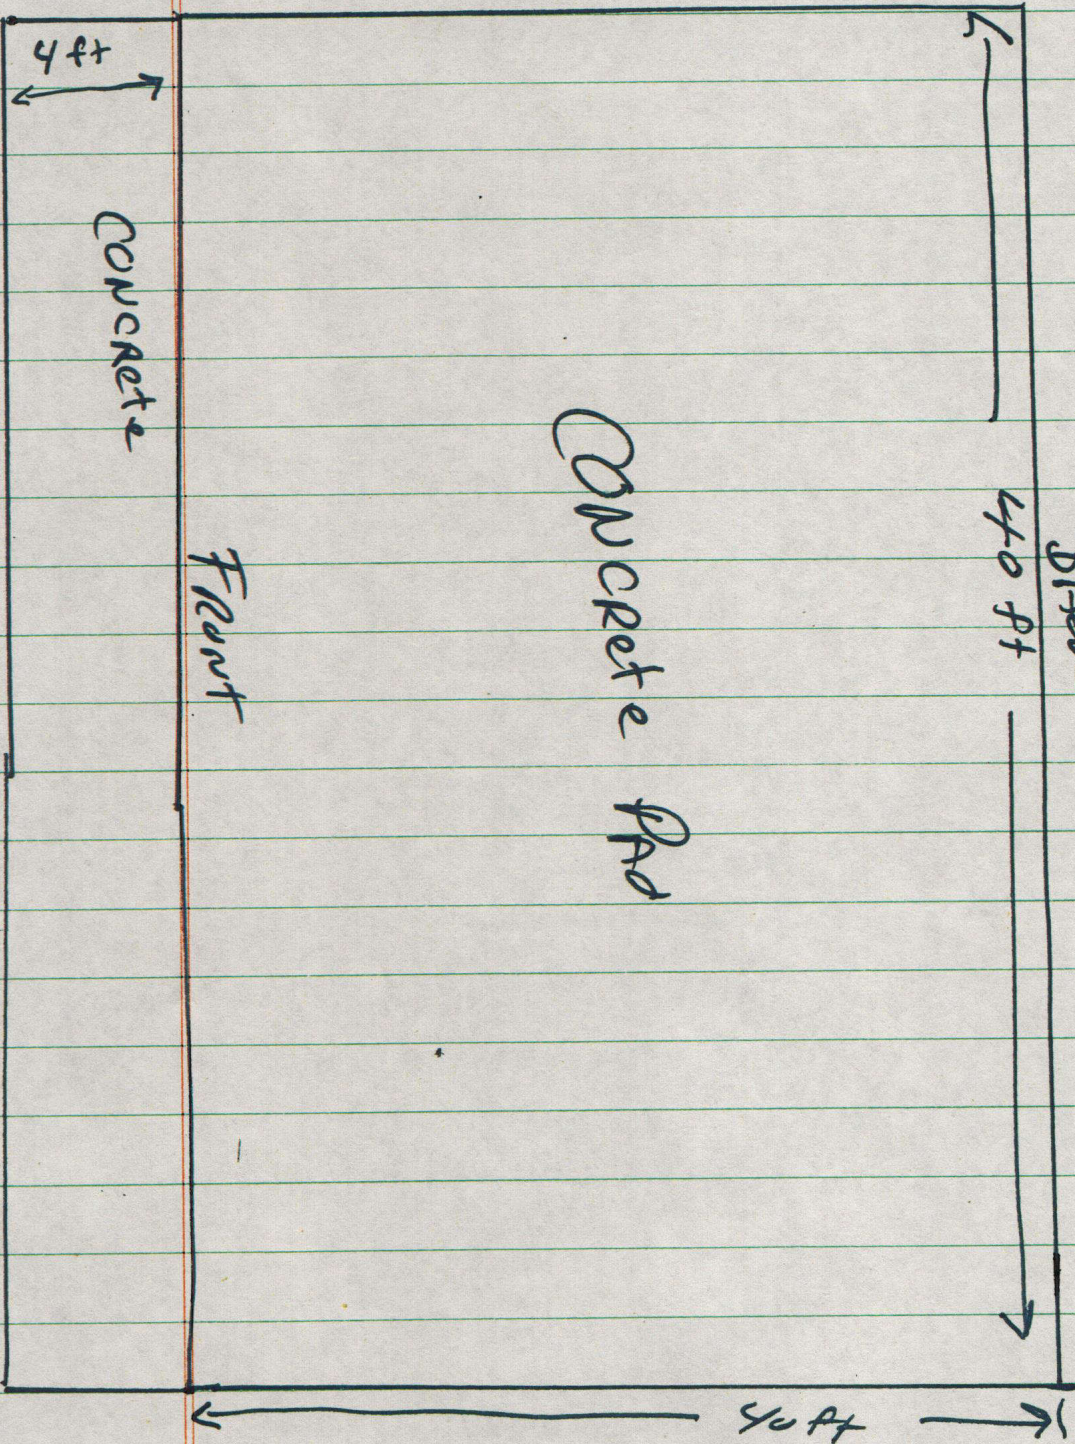 4 ft
Concrete
Front
Concrete Pad
40 ft
40 ft